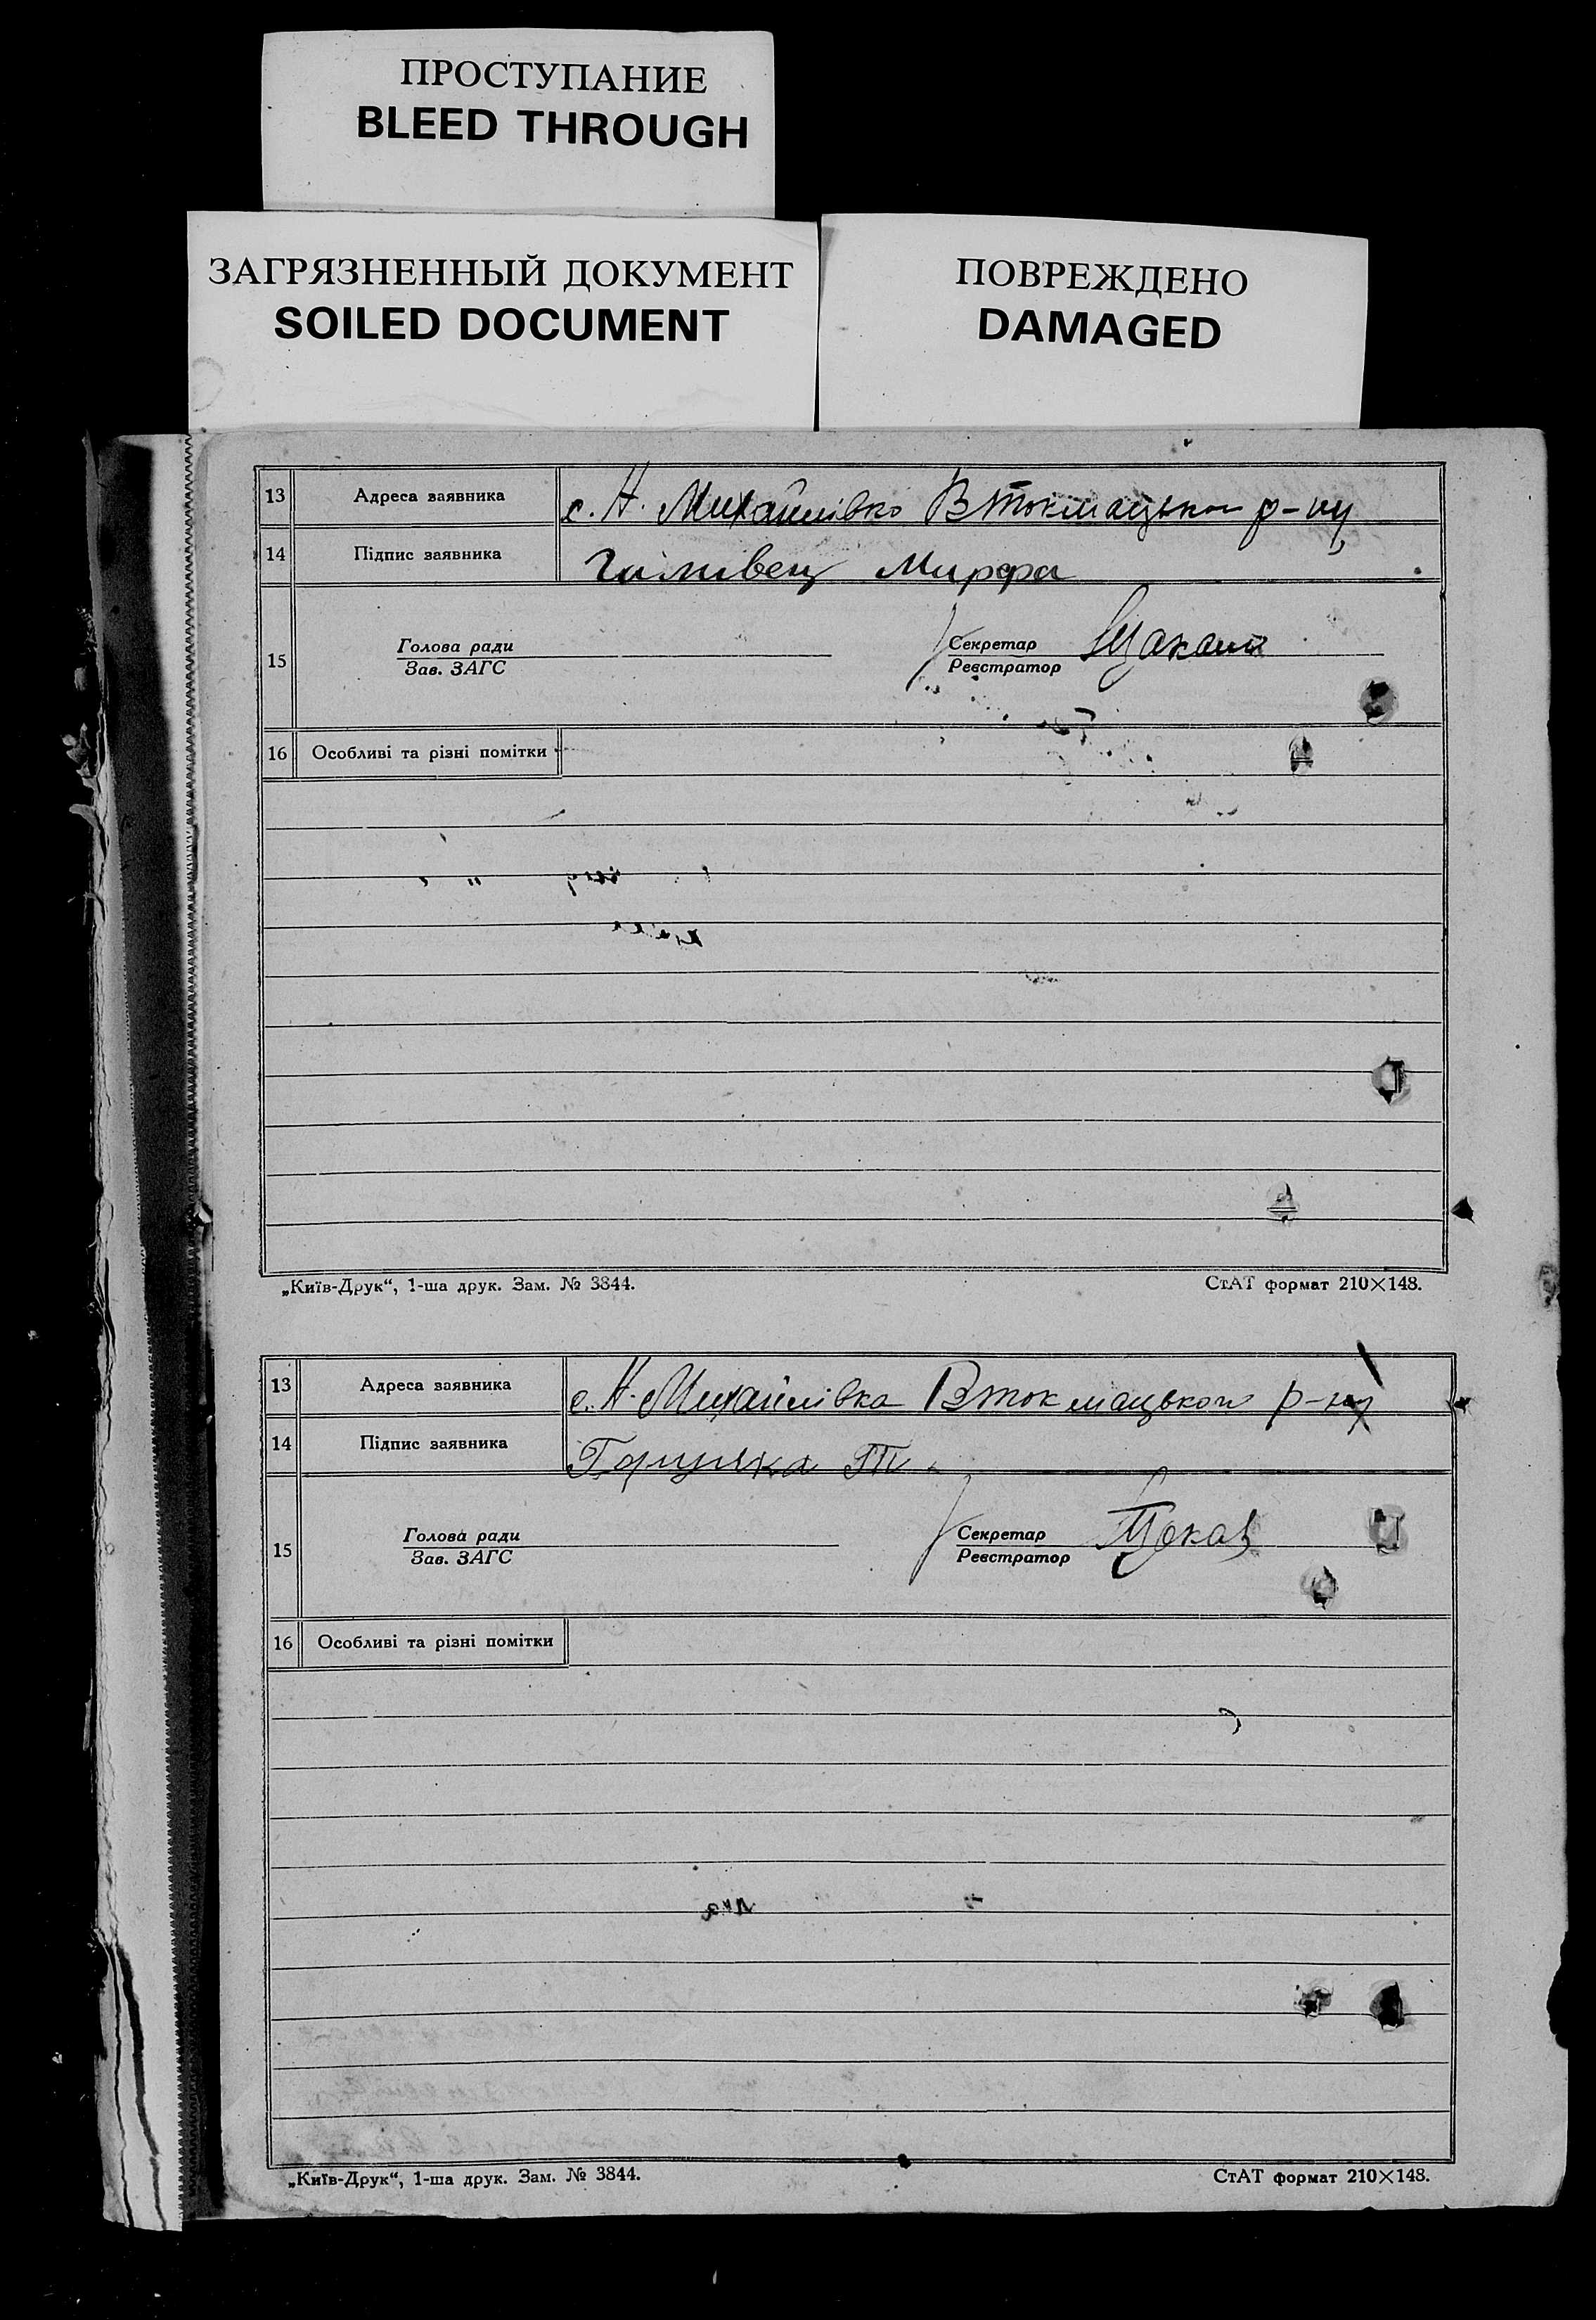 ПРОСТУПАНИЕ
BLEED THROUGH
ЗАГРЯЗНЕННЫЙ ДОКУМЕНТ
SOILED DOCUMENT
ПОВРЕЖДЕНО
DAMAGED
13 Адреса заявника с. Н. Михайлівко В Токмацького р-ну
14 Підпис заявника Марфа
15 Голова ради Секретар
Зав. ЗАГС Реєстратор
16 Особливі та різні помітки
„Київ-Друк“, 1-ша друк. Зам. № 3844. СтАТ формат 210×148.
13 Адреса заявника с. Н. Михайлівка В Токмацького р-ну
14 Підпис заявника
15 Голова ради Секретар
Зав. ЗАГС Реєстратор
16 Особливі та різні помітки
„Київ-Друк“, 1-ша друк. Зам. № 3844. СтАТ формат 210×148.